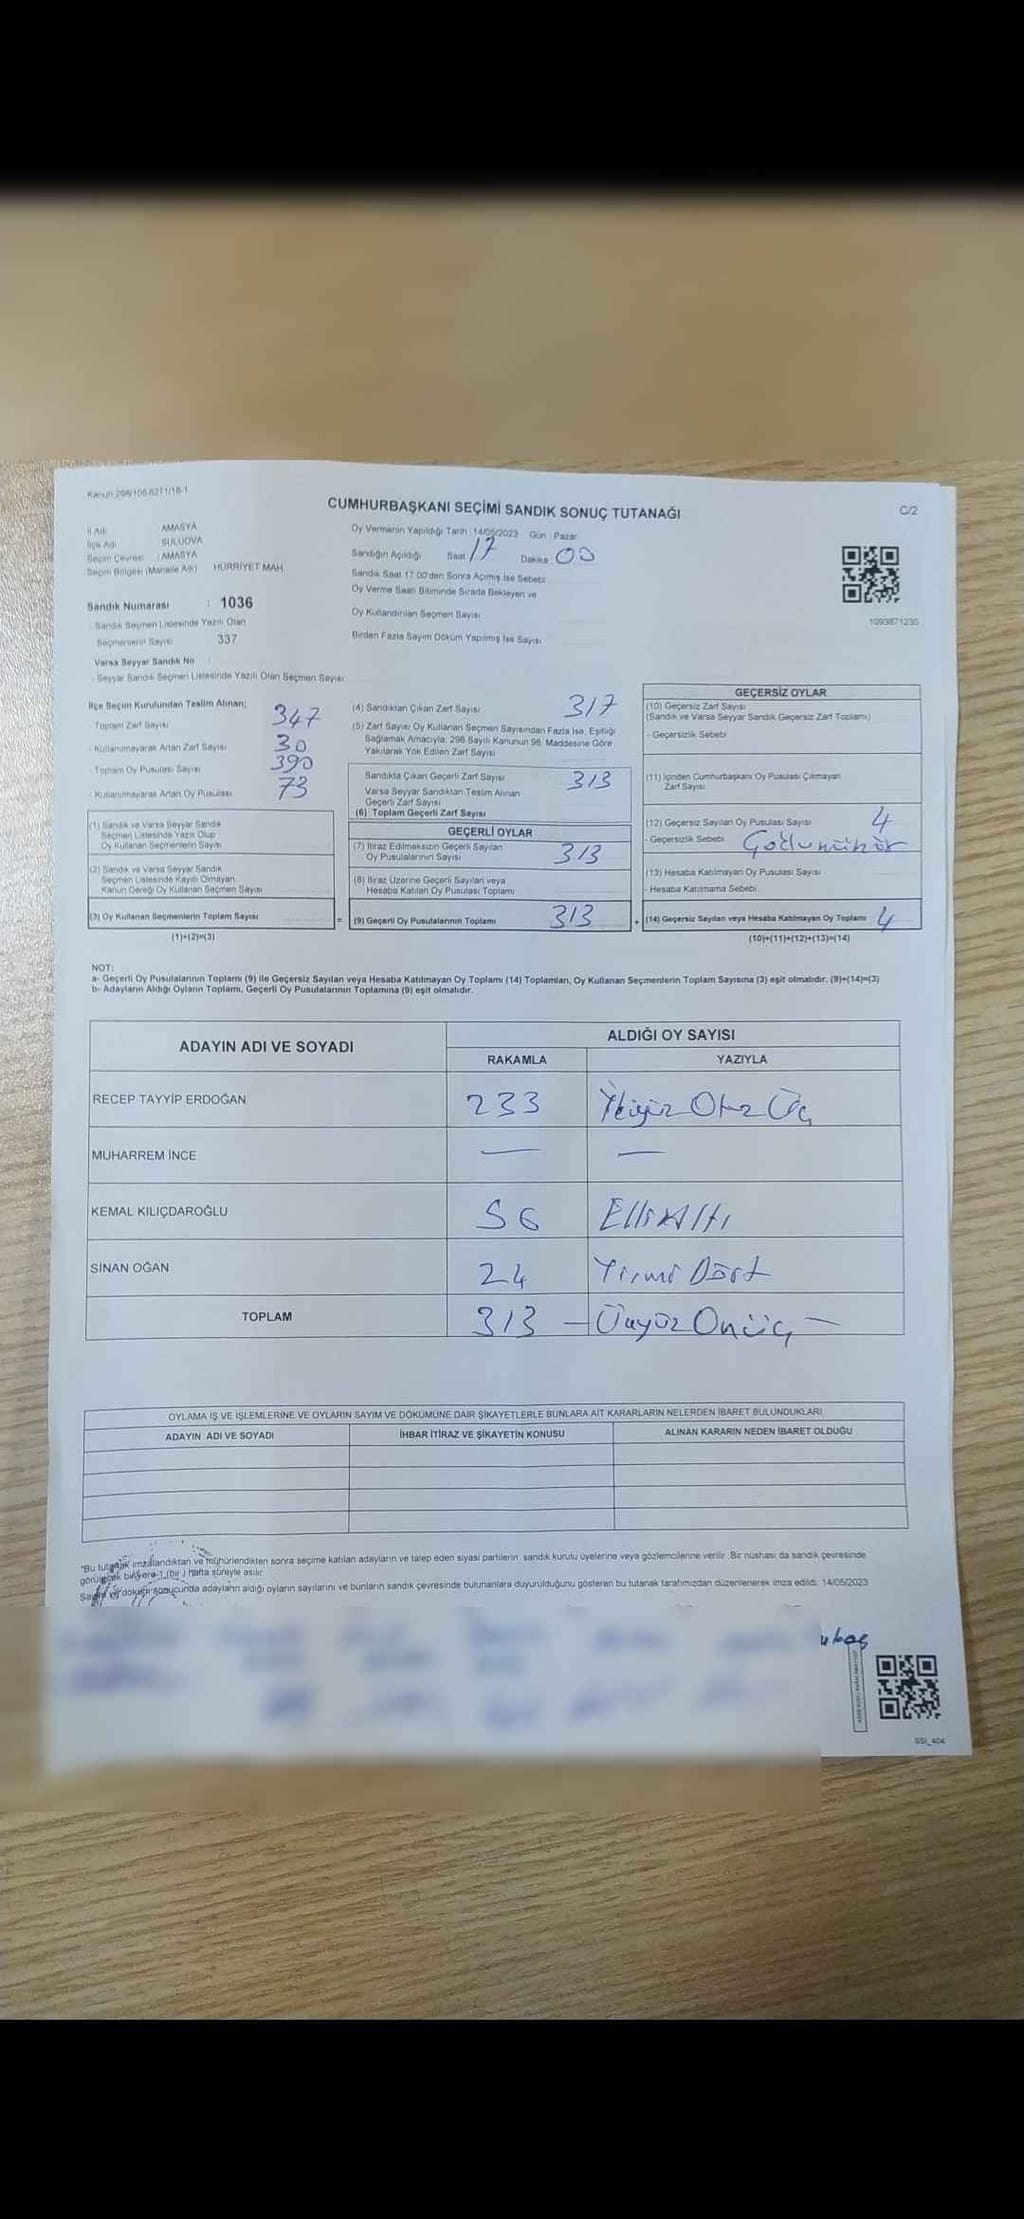 Kanun:298/105,6271/18-1
CUMHURBAŞKANI SEÇİMİ SANDIK SONUÇ TUTANAĞI
C/2
İl Adı : AMASYA
İlçe Adı : SULUOVA
Seçim Çevresi : AMASYA
Seçim Bölgesi (Mahalle Adı) HÜRRİYET MAH
Sandık Numarası : 1036
- Sandık Seçmen Listesinde Yazılı Olan
Seçmenlerin Sayısı 337
Varsa Seyyar Sandık No
- Seyyar Sandık Seçmen Listesinde Yazılı Olan Seçmen Sayısı
Oy Vermenin Yapıldığı Tarih 14/05/2023 Gün Pazar
Sandığın Açıldığı Saat 17 Dakika 00
Sandık Saat 17.00'den Sonra Açılmış İse Sebebi
Oy Verme Saati Bitiminde Sırada Bekleyen ve
Oy Kullandırılan Seçmen Sayısı
Birden Fazla Sayım Döküm Yapılmış İse Sayısı
1093871230
İlçe Seçim Kurulundan Teslim Alınan;
- Toplam Zarf Sayısı 347
- Kullanılmayarak Artan Zarf Sayısı 30
- Toplam Oy Pusulası Sayısı 390
- Kullanılmayarak Artan Oy Pusulası 73
(1) Sandık ve Varsa Seyyar Sandık
Seçmen Listesinde Yazılı Olup
Oy Kullanan Seçmenlerin Sayısı
(2) Sandık ve Varsa Seyyar Sandık
Seçmen Listesinde Kayıtlı Olmayan
Kanun Gereği Oy Kullanan Seçmen Sayısı
(3) Oy Kullanan Seçmenlerin Toplam Sayısı =
(1)+(2)=(3)
(4) Sandıktan Çıkan Zarf Sayısı 317
(5) Zarf Sayısı Oy Kullanan Seçmen Sayısından Fazla İse, Eşitliği
Sağlamak Amacıyla, 298 Sayılı Kanunun 98. Maddesine Göre
Yakılarak Yok Edilen Zarf Sayısı
Sandıkta Çıkan Geçerli Zarf Sayısı 313
Varsa Seyyar Sandıktan Teslim Alınan
Geçerli Zarf Sayısı
(6) Toplam Geçerli Zarf Sayısı
GEÇERLİ OYLAR
(7) İtiraz Edilmeksizin Geçerli Sayılan
Oy Pusulalarının Sayısı 313
(8) İtiraz Üzerine Geçerli Sayılan veya
Hesaba Katılan Oy Pusulası Toplamı
(9) Geçerli Oy Pusulalarının Toplamı 313 +
GEÇERSİZ OYLAR
(10) Geçersiz Zarf Sayısı
(Sandık ve Varsa Seyyar Sandık Geçersiz Zarf Toplamı)
- Geçersizlik Sebebi
(11) İçinden Cumhurbaşkanı Oy Pusulası Çıkmayan
Zarf Sayısı
(12) Geçersiz Sayılan Oy Pusulası Sayısı 4
- Geçersizlik Sebebi
(13) Hesaba Katılmayan Oy Pusulası Sayısı
- Hesaba Katılmama Sebebi
(14) Geçersiz Sayılan veya Hesaba Katılmayan Oy Toplamı 4
(10)+(11)+(12)+(13)=(14)
NOT:
a- Geçerli Oy Pusulalarının Toplamı (9) ile Geçersiz Sayılan veya Hesaba Katılmayan Oy Toplamı (14) Toplamları, Oy Kullanan Seçmenlerin Toplam Sayısına (3) eşit olmalıdır. (9)+(14)=(3)
b- Adayların Aldığı Oyların Toplamı, Geçerli Oy Pusulalarının Toplamına (9) eşit olmalıdır.
ADAYIN ADI VE SOYADI ALDIĞI OY SAYISI
RAKAMLA YAZIYLA
RECEP TAYYİP ERDOĞAN 233 İkiyüz Otuz Üç
MUHARREM İNCE — —
KEMAL KILIÇDAROĞLU 56 Elli Altı
SİNAN OĞAN 24 Yirmi Dört
TOPLAM 313 — Üçyüz Onüç —
OYLAMA İŞ VE İŞLEMLERİNE VE OYLARIN SAYIM VE DÖKÜMÜNE DAİR ŞİKAYETLERLE BUNLARA AİT KARARLARIN NELERDEN İBARET BULUNDUKLARI
ADAYIN ADI VE SOYADI İHBAR İTİRAZ VE ŞİKAYETİN KONUSU ALINAN KARARIN NEDEN İBARET OLDUĞU
*Bu tutanak imzalandıktan ve mühürlendikten sonra seçime katılan adayların ve talep eden siyasi partilerin sandık kurulu üyelerine veya gözlemcilerine verilir. Bir nüshası da sandık çevresinde
görülecek bir yere 1 (bir ) hafta süreyle asılır.
Sayım ve döküm sonucunda adayların aldığı oyların sayılarını ve bunların sandık çevresinde bulunanlara duyurulduğunu gösteren bu tutanak tarafımızdan düzenlenerek imza edildi. 14/05/2023
SSİ_404